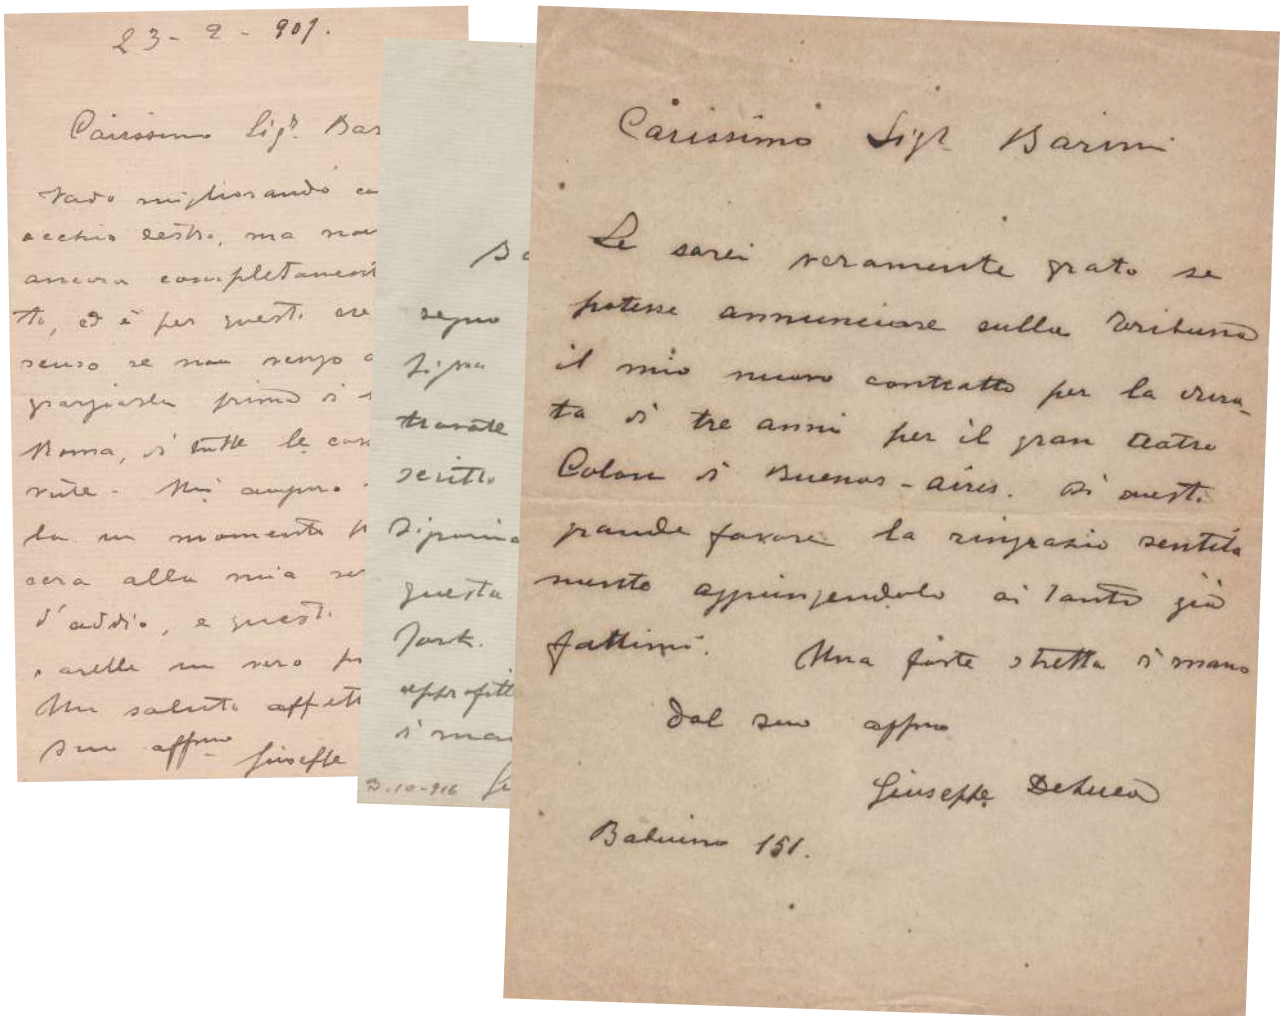 23-2-907.
Carissimo Sigr. Bar
Vado migliorando co
occhio destro, ma non
ancora completament
to, ed è per questo che
scuso se non vengo a
graziarla prima di
Roma, di tutte le cos
Mi auguro
la un momento p
cera alla mia ser
d'addio, e questo
sarebbe un vero pi
Un saluto affett
suo affmo Giuseppe
Ba
segno
Signa
trovate
scritto
Signorina
questa
York.
approfitt
di man
3.10-916 Gi
Carissimo Sigr Barini
Le sarei veramente grato se
potesse annunciare sulla Tribuna
il mio nuovo contratto per la dura-
ta di tre anni per il gran teatro
Colon di Buenos-aires. Di questo
grande favore la ringrazio sentita
mente aggiungendolo ai tanti già
fattimi. Una forte stretta di mano
dal suo affmo
Giuseppe DeLuca
Babuino 151.